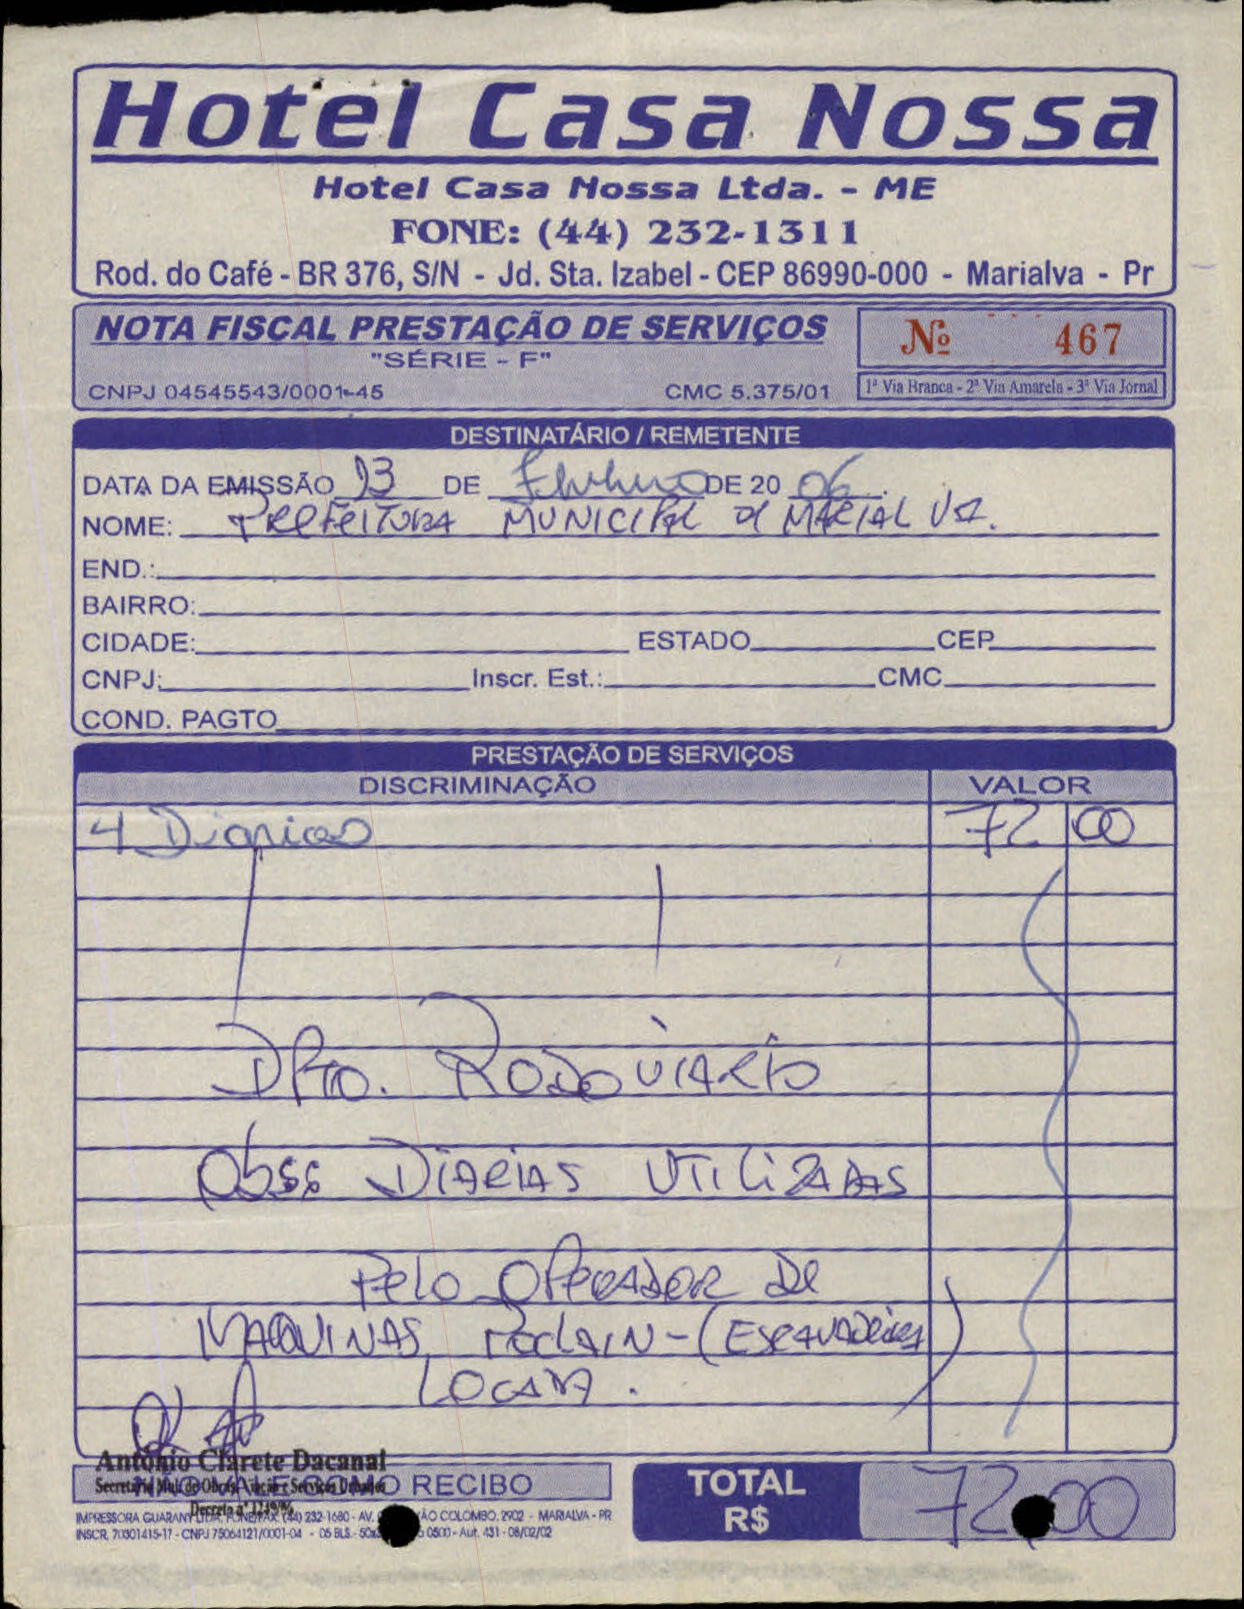 Hotel Casa Nossa
Hotel Casa Nossa Ltda. - ME
FONE: (44) 232-1311
Rod. do Café - BR 376, S/N - Jd. Sta. Izabel - CEP 86990-000 - Marialva - Pr
NOTA FISCAL PRESTAÇÃO DE SERVIÇOS
"SÉRIE - F"
Nº 467
CNPJ 04545543/0001-45 CMC 5.375/01
1ª Via Branca - 2ª Via Amarela - 3ª Via Jornal
DESTINATÁRIO / REMETENTE
DATA DA EMISSÃO 13 DE Fevereiro DE 20 06.
NOME: PREFEITURA MUNICIPAL de MARIALVA.
END.:
BAIRRO:
CIDADE: ESTADO CEP
CNPJ: Inscr. Est.: CMC
COND. PAGTO
PRESTAÇÃO DE SERVIÇOS
DISCRIMINAÇÃO VALOR
4 Diarias 72 00
DPTO. RODOVIARIO
Obss DIARIAS UTILIZADAS
PELO OPERADOR DE
MAQUINAS POCLAIN - (ESCAVADEIRA)
LOCADA.
Antônio Clarete Dacanal
Secretário Mul. de Obras, Viação e Serviços Urbanos
Decreto nº 1249/96
NÃO VALE COMO RECIBO
TOTAL
R$ 72,00
IMPRESSORA GUARANY LTDA. FONE/FAX: (44) 232-1680 - AV. COLOMBO, 2902 - MARIALVA - PR
INSCR. 70301415-17 - CNPJ 75064121/0001-04 - 05 BLS. - 0500 - Aut. 431 - 08/02/02